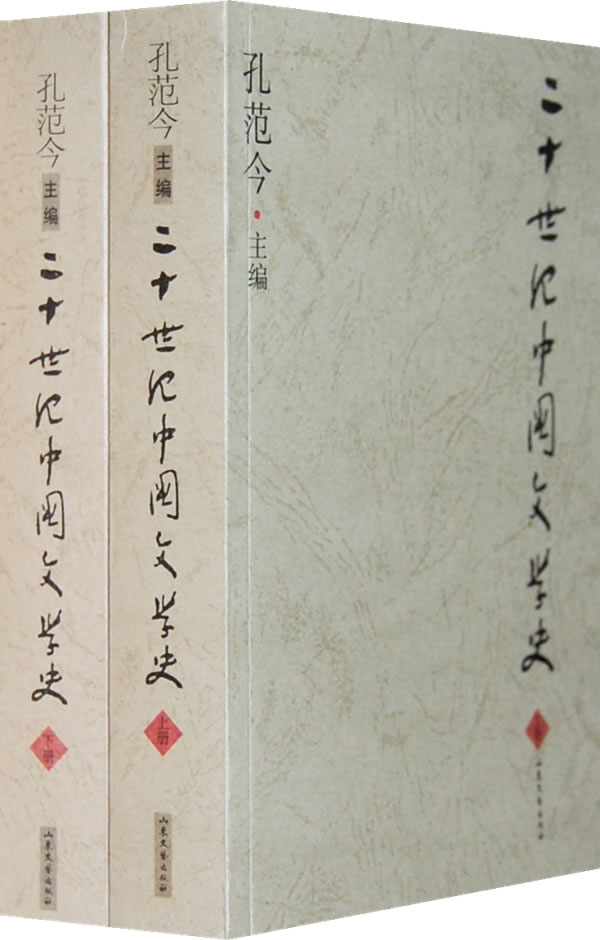 孔范今
主编
二十世纪中国文学史
下册
山东文艺出版社
孔范今
主编
二十世纪中国文学史
上册
山东文艺出版社
孔范今·主编
二十世纪中国文学史
上册
山东文艺出版社